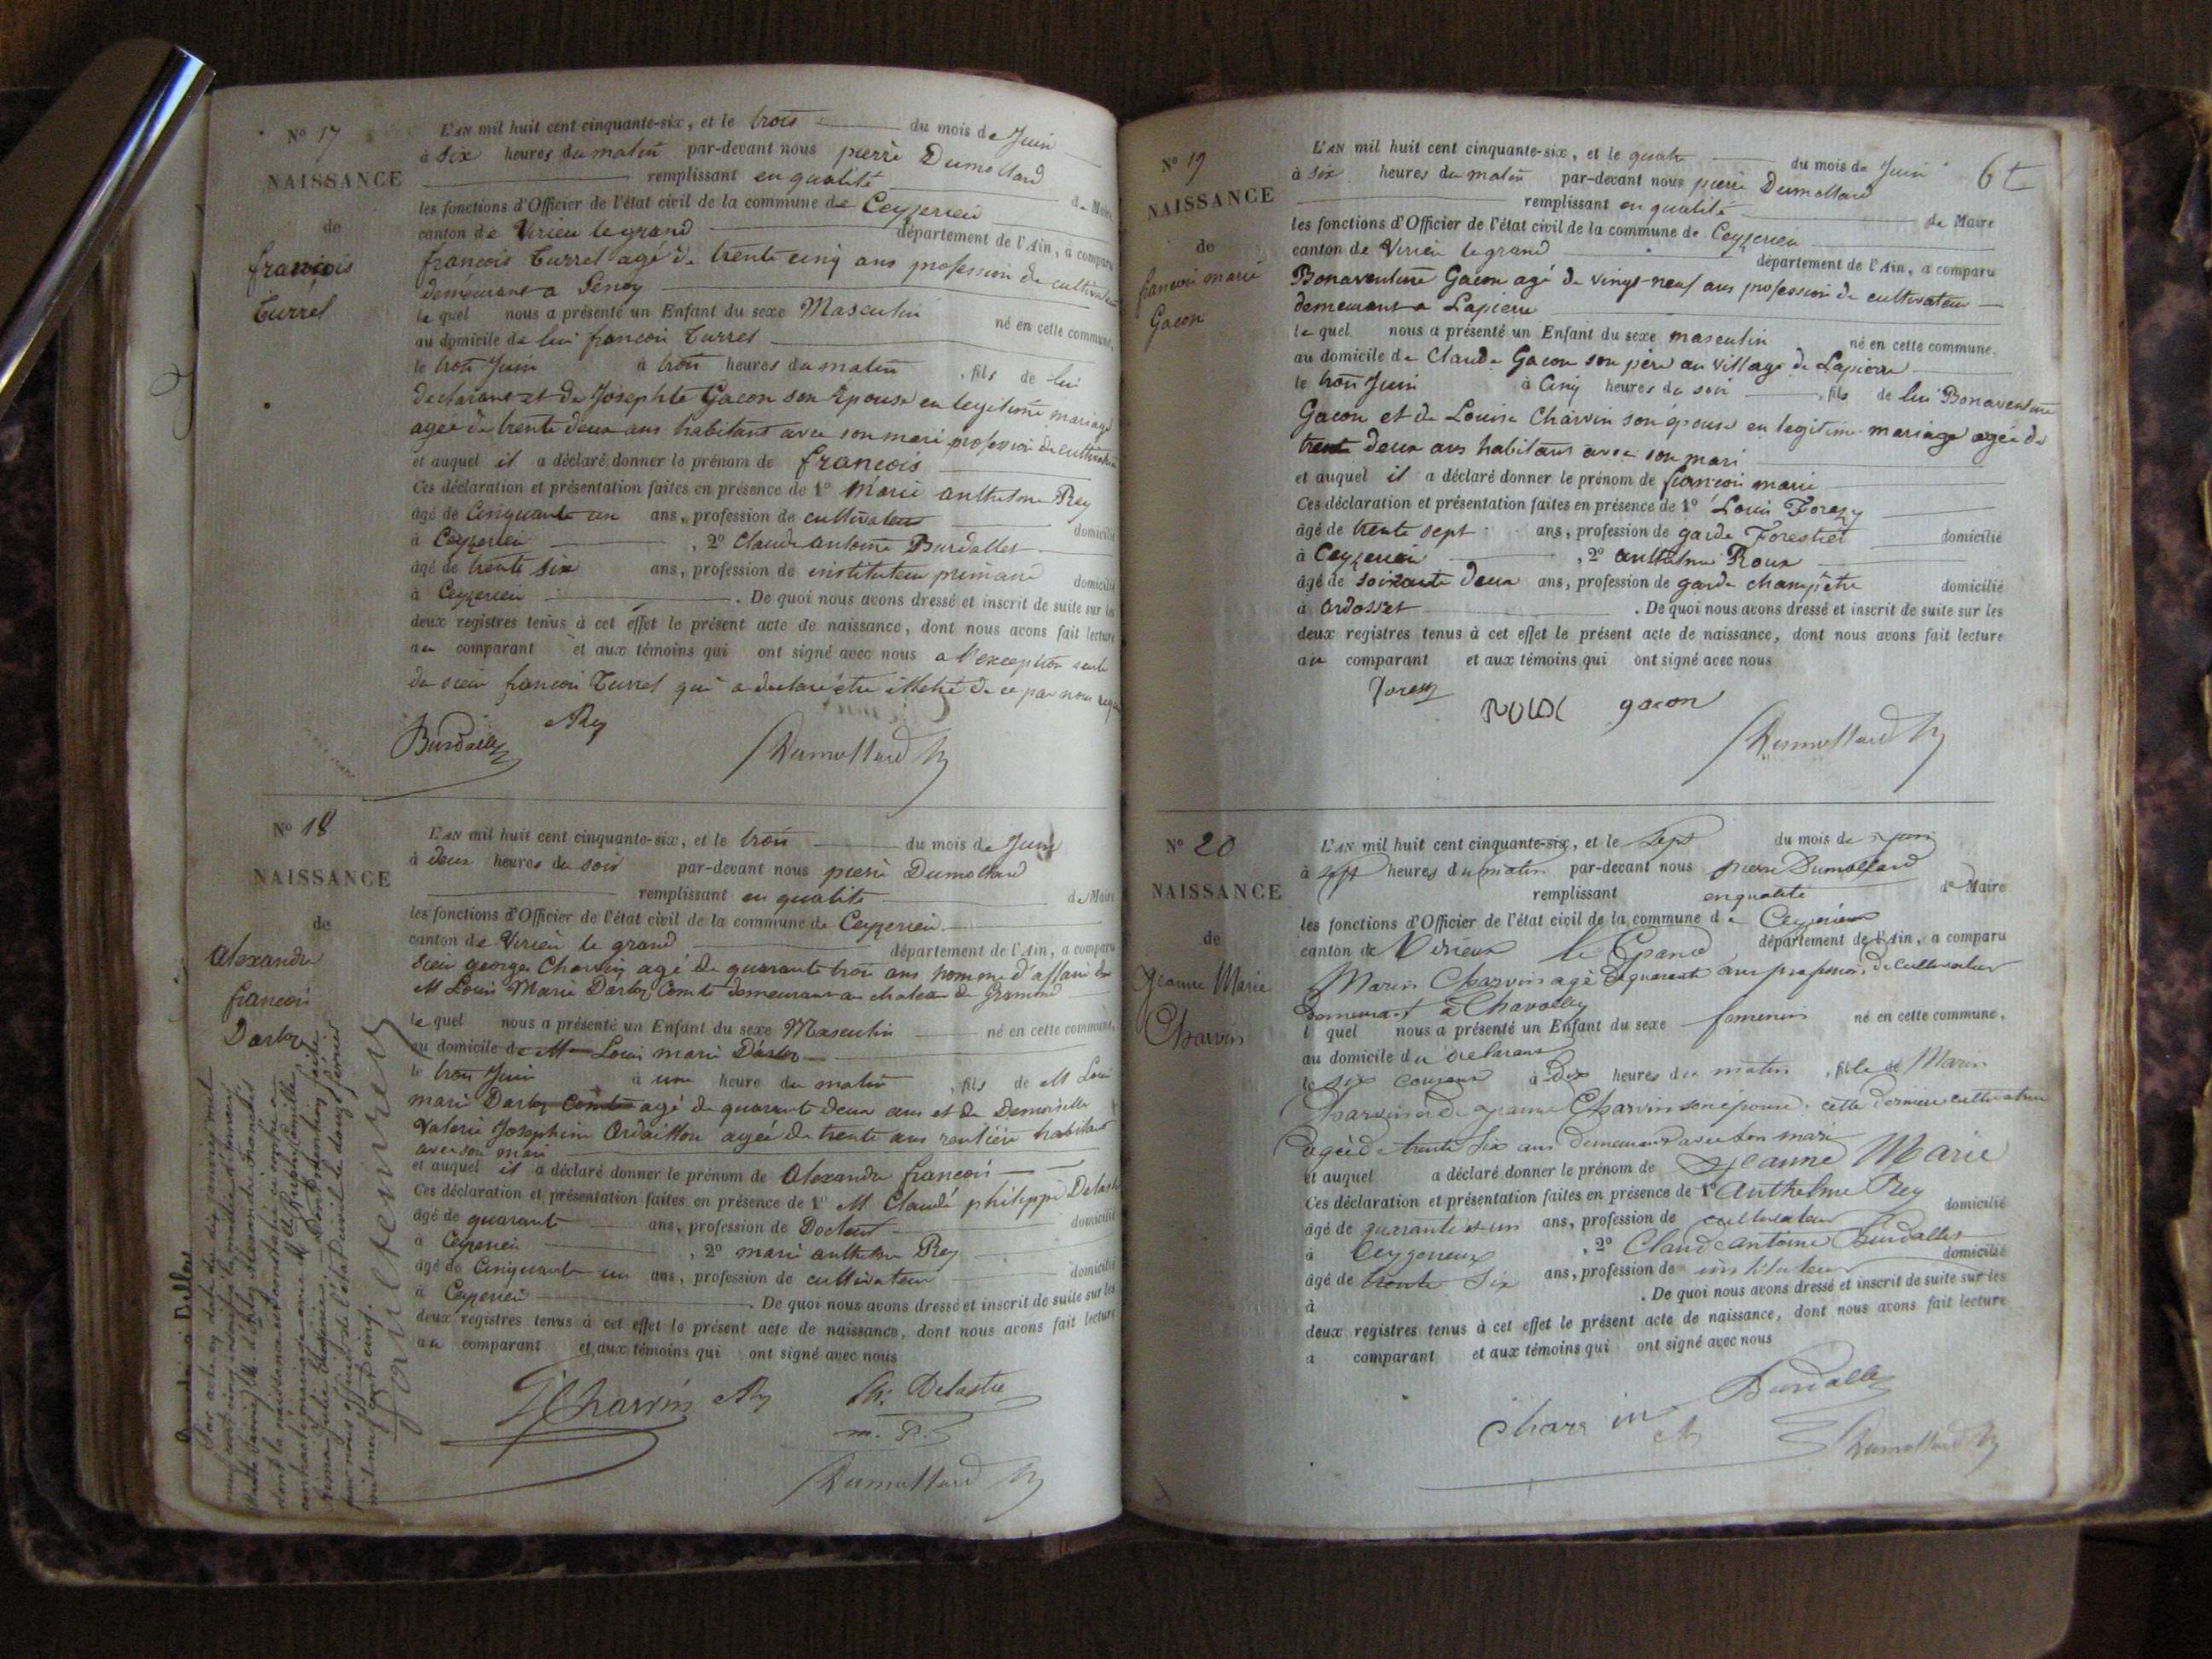 Nº 17
NAISSANCE
de
françois
Turrel
L'AN mil huit cent cinquante-six, et le trois du mois de Juin
à six heures du matin par-devant nous pierre Dumollard
remplissant en qualité de Maire
les fonctions d'Officier de l'état civil de la commune de Ceyzerieu
canton de Virieu le grand département de l'Ain, a comparu
françois Turrel agé de trente cinq ans profession de cultivateur
demeurant a
le quel nous a présenté un Enfant du sexe Masculin né en cette commune,
au domicile de lui françois Turrel
le trois Juin à trois heures du matin, fils de lui
declarant et de Josephte Gacon son Epouse en legitime mariage
agée de trente deux ans habitant avec son mari profession de cultivatrice
et auquel il a déclaré donner le prénom de françois
Ces déclaration et présentation faites en présence de 1º Marie anthelme Rey
âgé de Cinquante un ans, profession de cultivateur domicilié
à Ceyzerieu, 2º Claude antoine Burdallet
âgé de trente six ans, profession de instituteur primaire domicilié
à Ceyzerieu. De quoi nous avons dressé et inscrit de suite sur les
deux registres tenus à cet effet le présent acte de naissance, dont nous avons fait lecture
au comparant et aux témoins qui ont signé avec nous a l'exception seule
du sieur françois Turrel qui a declaré être illetré de ce par nous requis
Burdallet Rey Dumollard
Nº 18
NAISSANCE
de
Alexandre
françois
Darloz
L'AN mil huit cent cinquante-six, et le trois du mois de Juin
à deux heures du soir par-devant nous pierre Dumollard
remplissant en qualité de Maire
les fonctions d'Officier de l'état civil de la commune de Ceyzerieu
canton de Virieu le grand département de l'Ain, a comparu
Sieur georges Charvin agé de quarante trois ans homme d'affaire de
M Louis Marie Darloz Comte demeurant au chateau de Gramond
le quel nous a présenté un Enfant du sexe Masculin né en cette commune,
au domicile de M Louis marie Darloz
le trois Juin à une heure du matin, fils de M Louis
marie Darloz Comte agé de quarante deux ans et de Demoiselle
Valerie Josephine Ordaillon agée de trente ans rentière habitant
avec son mari
et auquel il a déclaré donner le prénom de Alexandre françois
Ces déclaration et présentation faites en présence de 1º M Claude philippe Delastre
âgé de quarante ans, profession de Docteur domicilié
à Ceyzerieu, 2º marie anthelme Rey
âgé de Cinquante un ans, profession de cultivateur domicilié
à Ceyzerieu. De quoi nous avons dressé et inscrit de suite sur les
deux registres tenus à cet effet le présent acte de naissance, dont nous avons fait lecture
au comparant et aux témoins qui ont signé avec nous
G Charvin Rey Ph. Delastre
m. P.
Dumollard
Par acte en date du dix janvier mil
Nº 19
NAISSANCE
de
francois marie
Gacon
6
L'AN mil huit cent cinquante-six, et le quatre du mois de Juin
à six heures du matin par-devant nous pierre Dumollard
remplissant en qualité de Maire
les fonctions d'Officier de l'état civil de la commune de Ceyzerieu
canton de Virieu le grand département de l'Ain, a comparu
Bonaventure Gacon agé de vingt-neuf ans profession de cultivateur
demeurant a Lapierre
le quel nous a présenté un Enfant du sexe masculin né en cette commune,
au domicile de Claude Gacon son père au village de Lapierre
le trois Juin à Cinq heures du soir, fils de lui Bonaventure
Gacon et de Louise Charvin son épouse en legitime mariage agée de
trente deux ans habitant avec son mari
et auquel il a déclaré donner le prénom de françois marie
Ces déclaration et présentation faites en présence de 1º Louis Forest
âgé de trente sept ans, profession de garde Forestier domicilié
à Ceyzerieu, 2º anthelme Roux
âgé de soixante deux ans, profession de garde champêtre domicilié
à Ardosset. De quoi nous avons dressé et inscrit de suite sur les
deux registres tenus à cet effet le présent acte de naissance, dont nous avons fait lecture
au comparant et aux témoins qui ont signé avec nous
Forest roux gacon
Dumollard
Nº 20
NAISSANCE
de
Jeanne Marie
Charvin
L'AN mil huit cent cinquante-six, et le sept du mois de juin
à sept heures du matin par-devant nous pierre Dumollard
remplissant en qualité de Maire
les fonctions d'Officier de l'état civil de la commune de Ceyzerieux
canton de Virieux le Grand département de l'Ain, a comparu
Marin Charvin agé de quarante ans profession de cultivateur
demeurant à Chavolley
l quel nous a présenté un Enfant du sexe feminin né en cette commune,
au domicile du declarant
le six courant à dix heures du matin, fille de Marin
Charvin et de jeanne Charvin son épouse, cette derniere cultivatrice
agée de trente six ans demeurant avec son mari
et auquel a déclaré donner le prénom de Jeanne Marie
Ces déclaration et présentation faites en présence de 1º Anthelme Rey
âgé de quarante et un ans, profession de cultivateur domicilié
à Ceyzerieux, 2º Claude antoine Burdallet
âgé de trente six ans, profession de instituteur domicilié
à . De quoi nous avons dressé et inscrit de suite sur les
deux registres tenus à cet effet le présent acte de naissance, dont nous avons fait lecture
a comparant et aux témoins qui ont signé avec nous
Charvin Burdallet
Dumollard